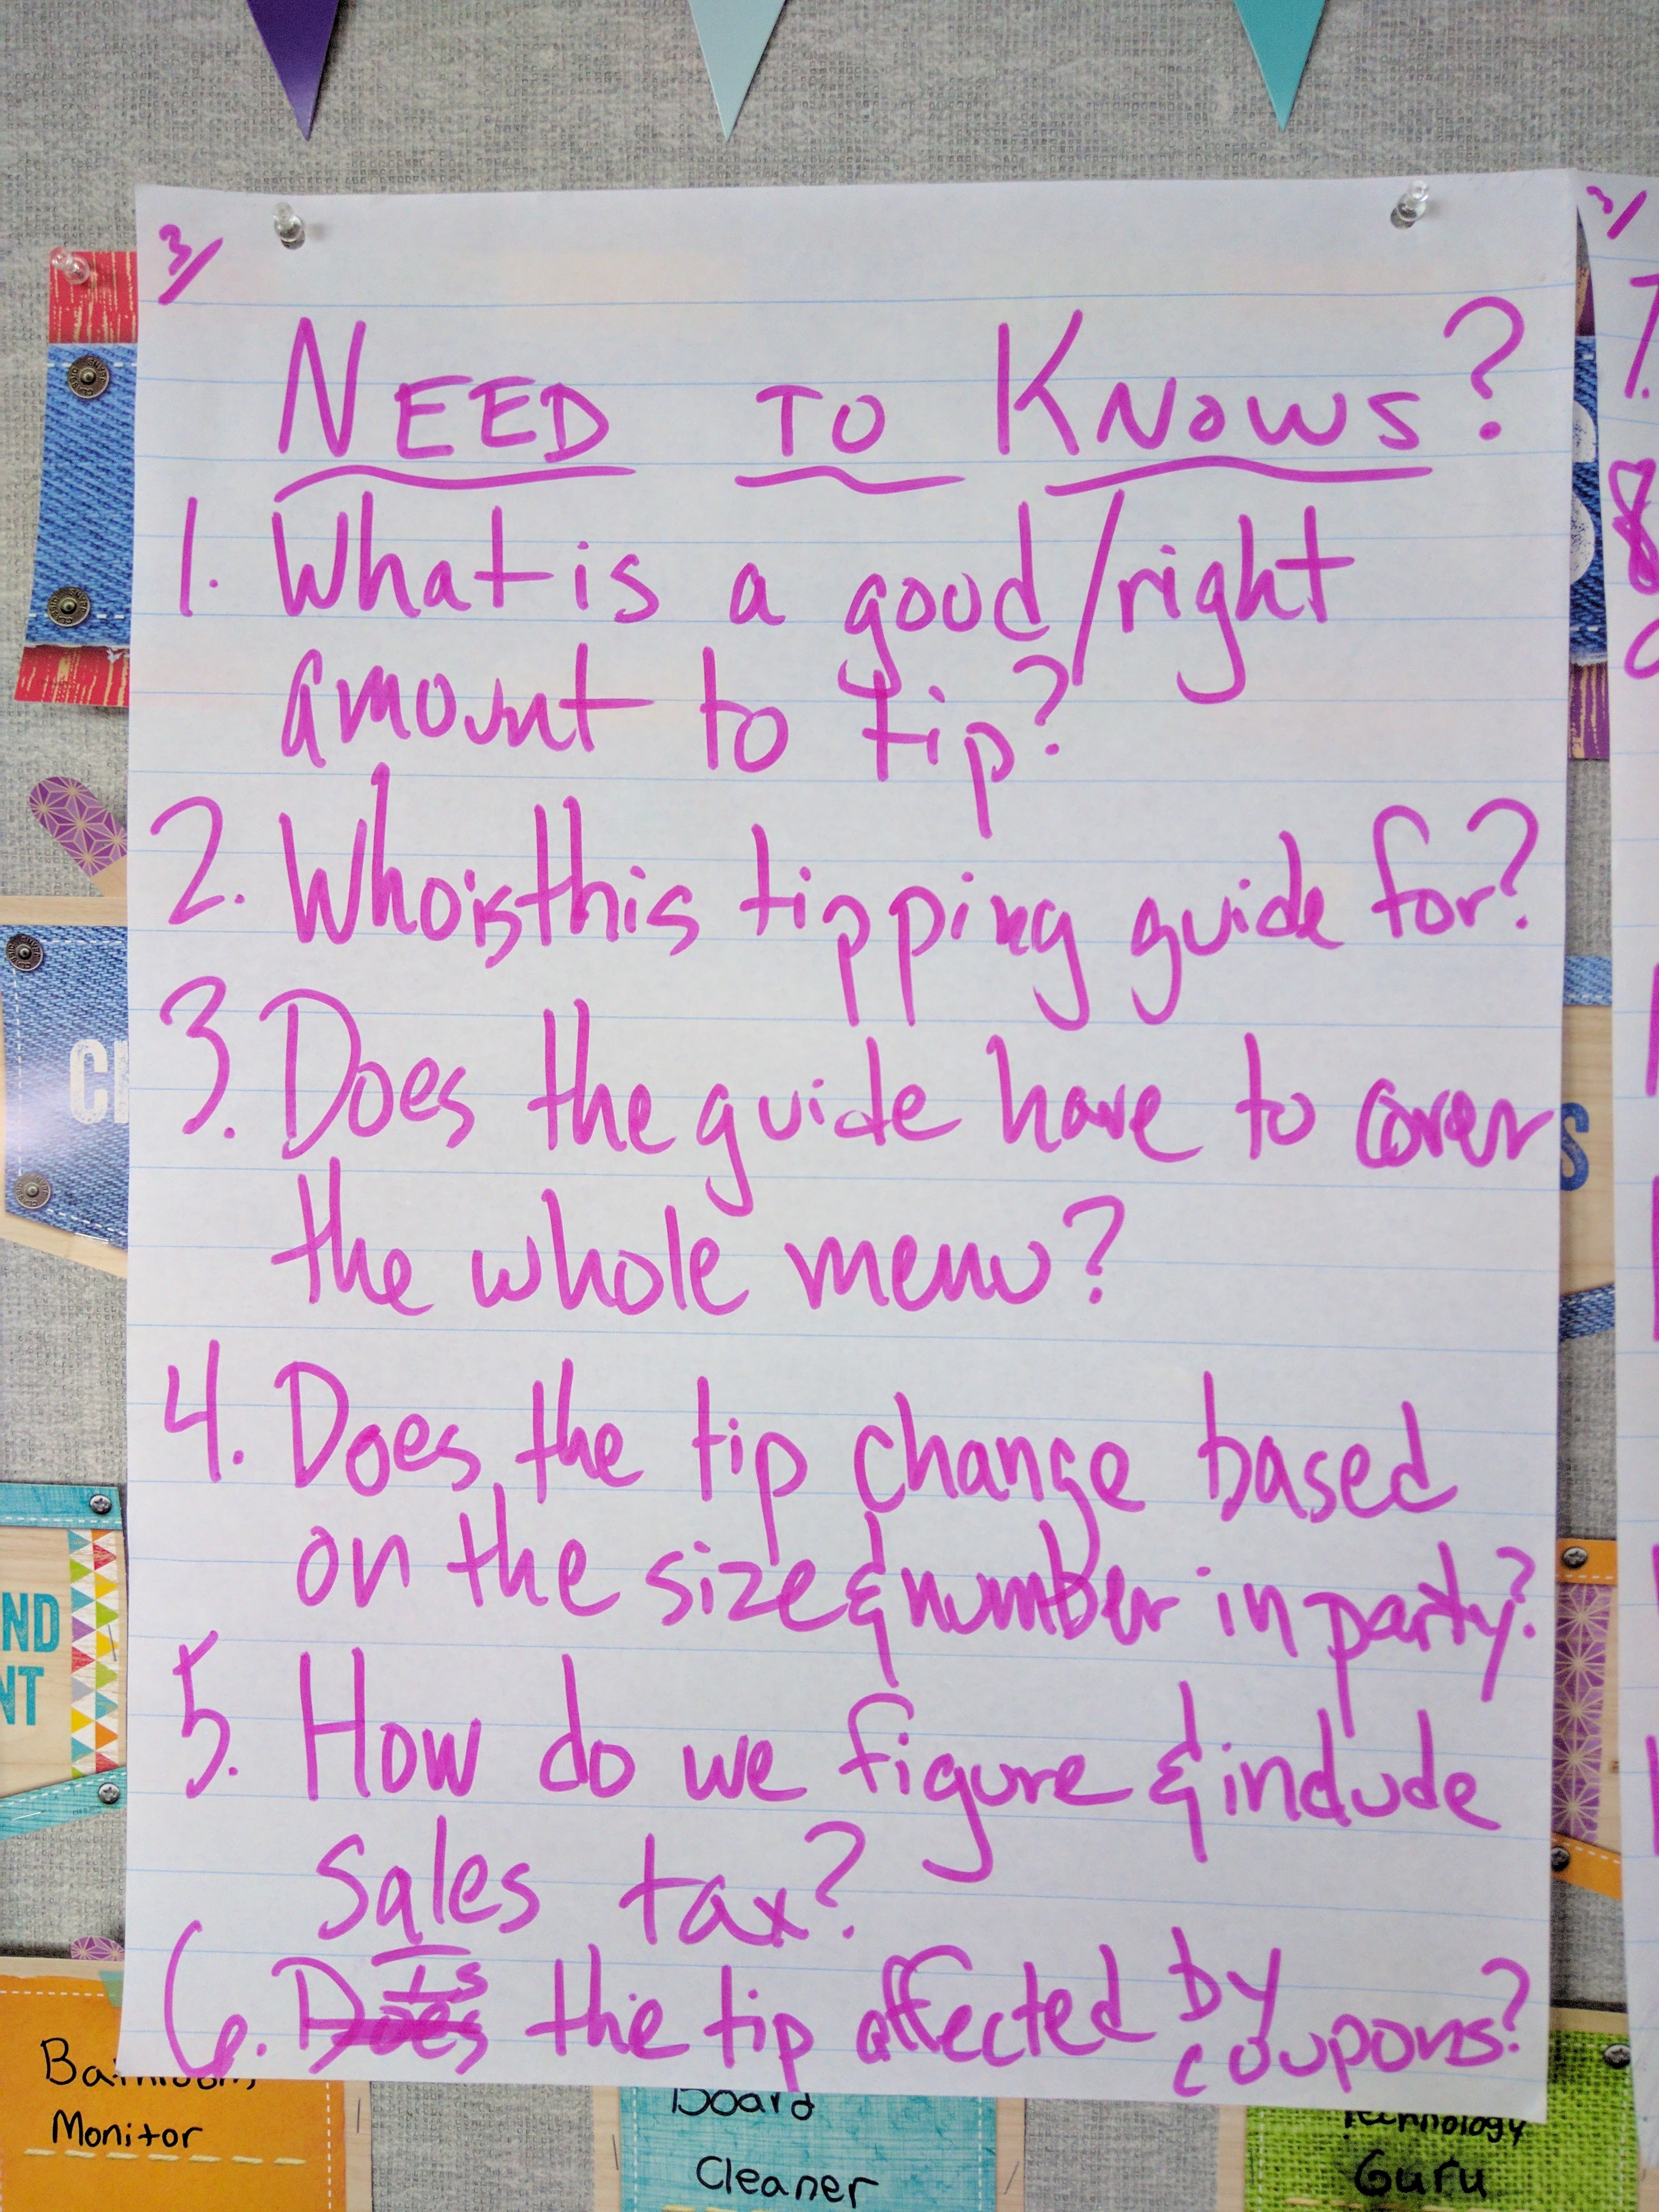 3/
NEED TO KNOWS?
1. What is a good/right
amount to tip?
2. Who is this tipping guide for?
3. Does the guide have to cover
the whole menu?
4. Does the tip change based
on the size & number in party?
5. How do we figure & include
sales tax?
6. Is the tip affected by
coupons?
3/
7.
8
ND
NT
Bathroom
Monitor
Board
Cleaner
Technology
Guru